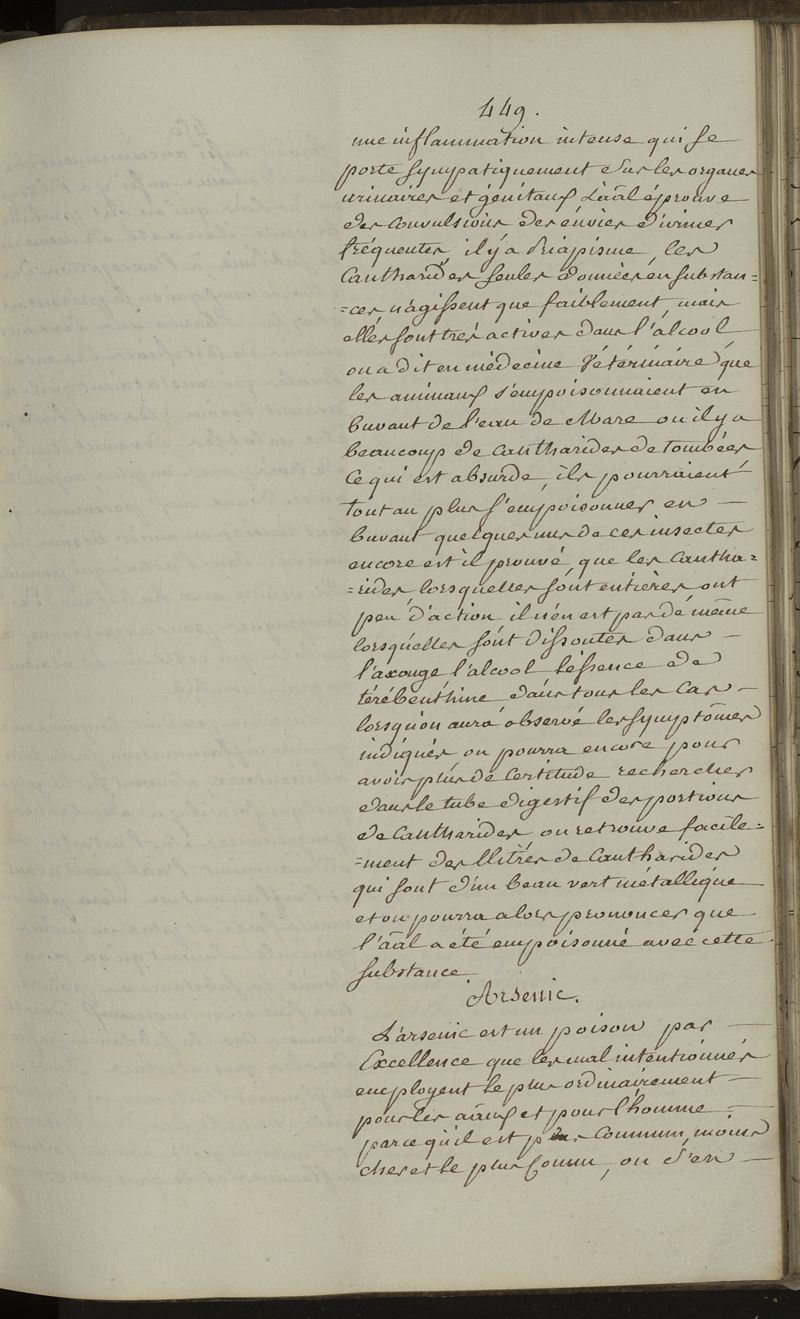 449.
une inflammation intense qui se
porte sympatiquement sur les organes
urinaires et génitaux L'āāl éprouve
des Convulsions des énvies d'uriner
fréquentes, il y'a Priapisme, les
Cantharides seules données en substan=
=ces n'agissent que faiblement, mais
elles sont trés actives dans l'alcool
on a dit en médecine Vétérinaire que
les animaux s'empoisonnaient en
buvant de l'eau de Mare ou il y a
beaucoup de cantharides de tombées
Ce qui est absurde, ils pourraient
tout au plus s'empoisonner en —
buvant quelques unes de ces insectes
encore est il prouvé, que les Cantha=
=rides, lorsqu'elles sont entières ont
peu d'action il n'en est pas de même
lorsqu'elles sont dissoutes dans —
l'axonge, l'alcool l'éssence de
térébenthine dans tous les Cas —
lorsqu'on aura observé les symptômes
indiqués on pourra encore pour
avoir plus de Certitude rechercher
dans le tube digestif des portions
de Cantharides on retrouve facile=
=ment des Elitres de Cantharides
qui sont d'un beau vert métallique
et on pourra alors prononcer que
l'āāl a été empoisonné avec cette
substance
Arsenic.
L'arsenic est un poison par —
Excellence que les mal intentionnés
employent le plus ordinairement —
pour les āāux et pour l'homme —
parcequ'il est plus Commun, moins
cher et le plus Connu, on s'en —